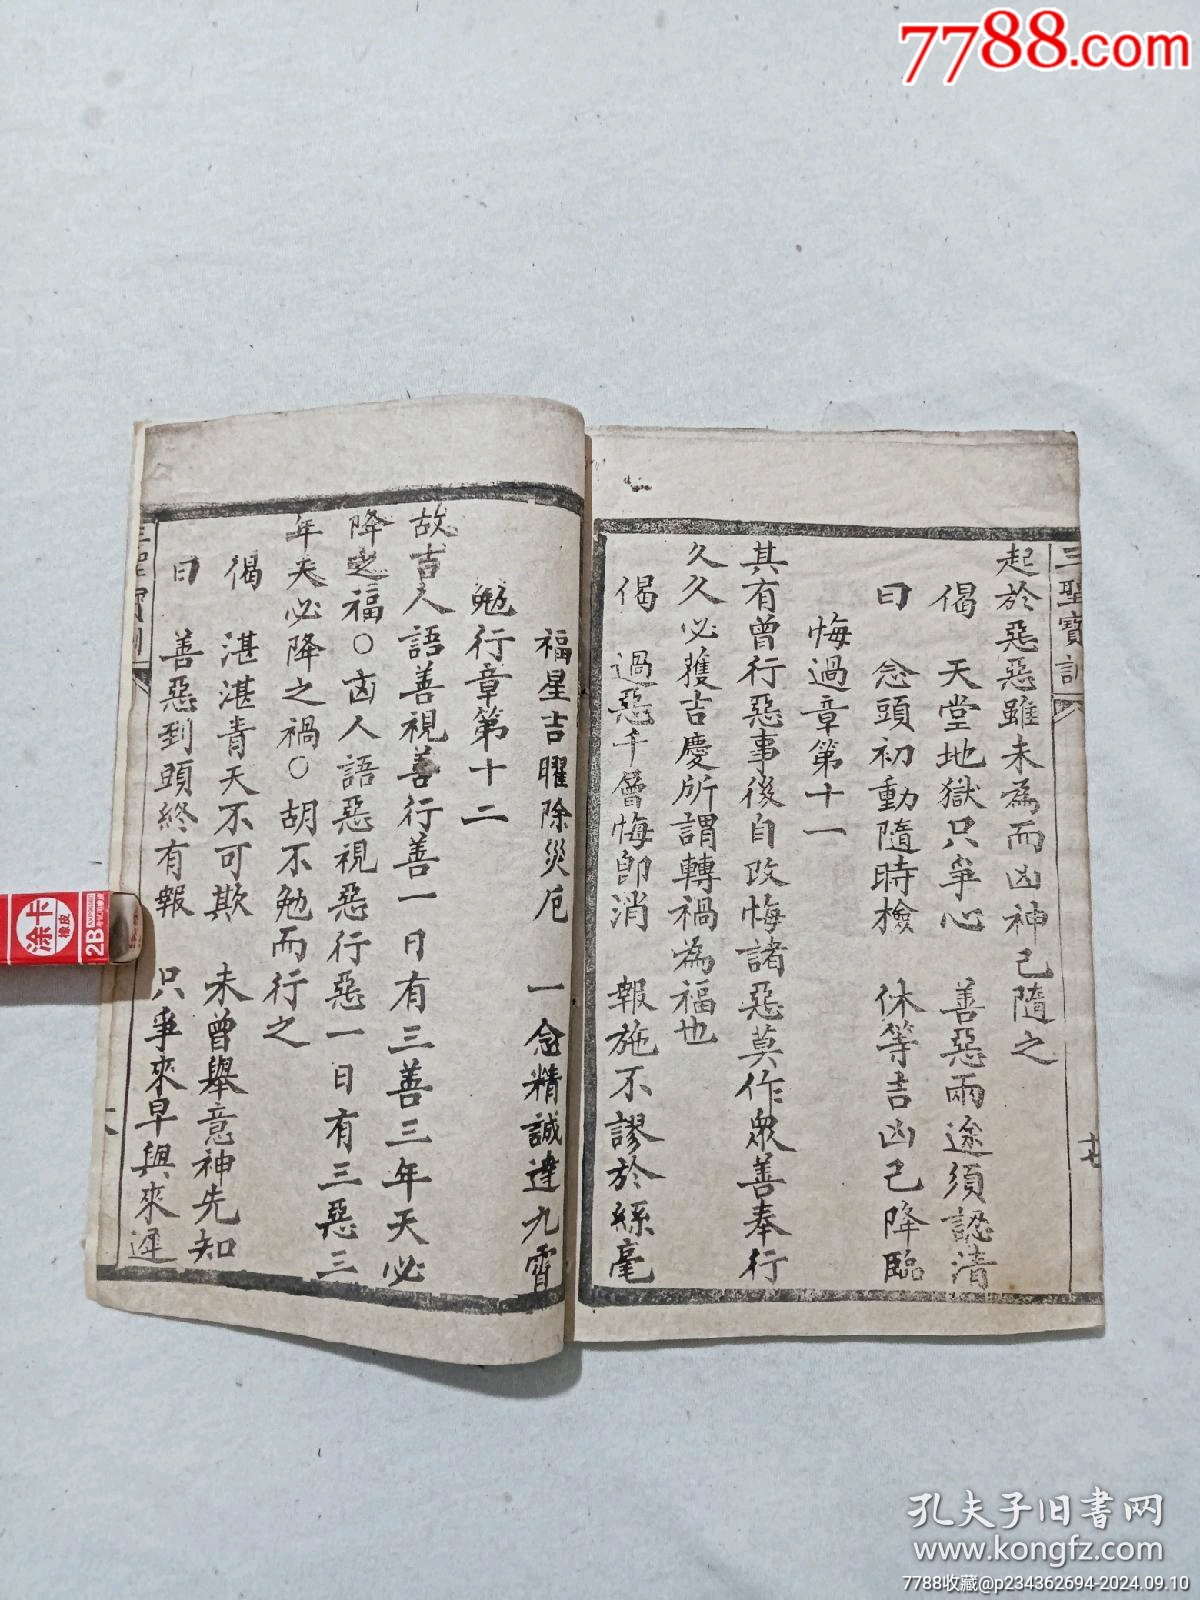 7788.com
三聖寶訓
起於惡惡雖未為而凶神已隨之
偈　天堂地獄只爭心　善惡兩途須認清
曰　念頭初動隨時檢　休等吉凶已降臨
悔過章第十一
其有曾行惡事後自改悔諸惡莫作衆善奉行
久久必獲吉慶所謂轉禍為福也
偈　過惡千層悔即消　報施不謬於絲毫
十七
福星吉曜除災厄　一念精誠達九霄
勉行章第十二
故吉人語善視善行善一日有三善三年天必
降之福○凶人語惡視惡行惡一日有三惡三
年天必降之禍○胡不勉而行之
偈　湛湛青天不可欺　未曾舉意神先知
曰　善惡到頭終有報　只爭來早與來遲
涂卡
橡皮
2B
孔夫子旧书网
www.kongfz.com
7788收藏@p234362694-2024.09.10